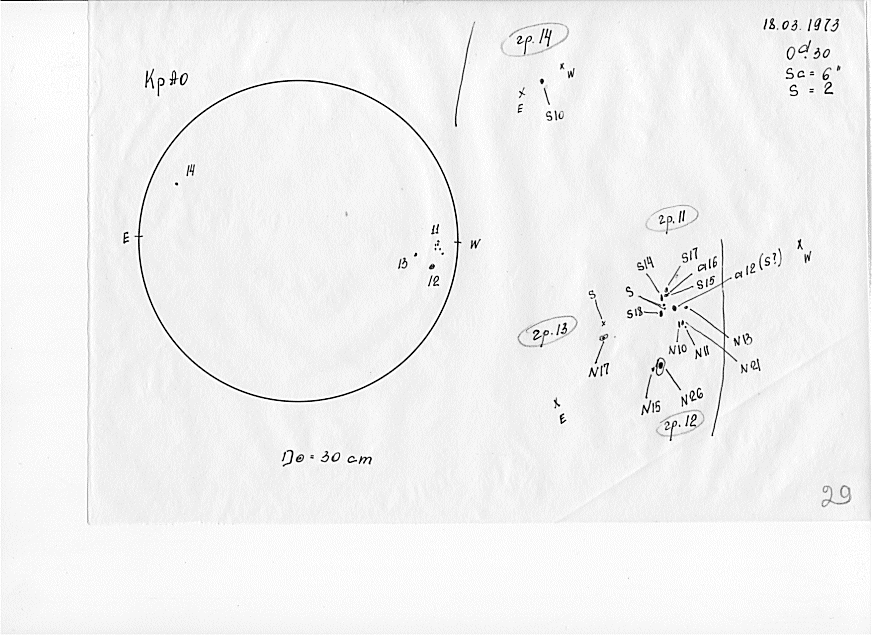 18.03.1973
0d.30
Sc = 6"
S = 2
КрАО
14
E
W
11
13
12
D⊙ = 30 cm
гр. 14
W
E
S10
гр. 11
S14
S17
α16
S15
α12 (S?)
W
S
S
S18
гр. 13
N17
N10
N11
N13
N21
E
N15
N26
гр. 12
29